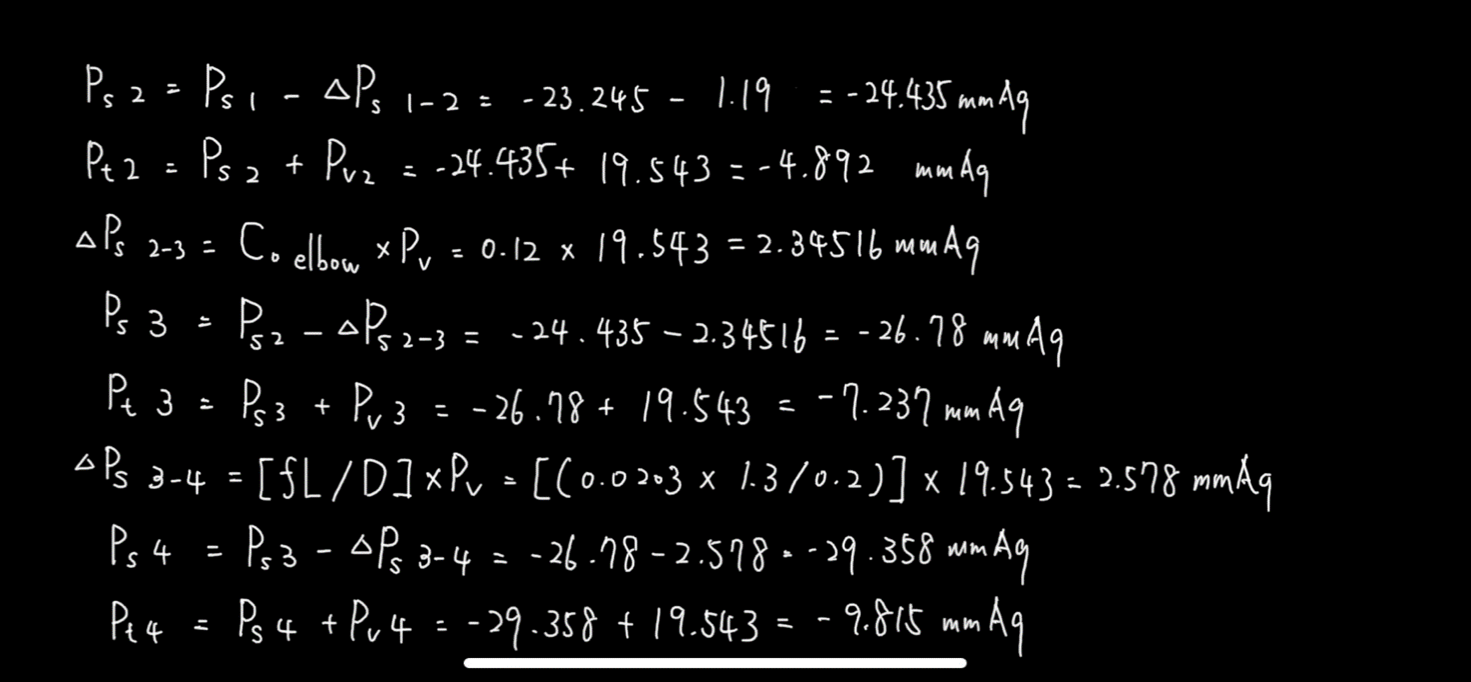 Ps 2 = Ps 1 - △Ps 1-2 = -23.245 - 1.19 = -24.435 mmAq
Pt 2 = Ps 2 + Pv 2 = -24.435 + 19.543 = -4.892 mmAq
△Ps 2-3 = Co elbow × Pv = 0.12 × 19.543 = 2.34516 mmAq
Ps 3 = Ps2 - △Ps 2-3 = -24.435 - 2.34516 = -26.78 mmAq
Pt 3 = Ps3 + Pv 3 = -26.78 + 19.543 = -7.237 mmAq
△Ps 3-4 = [fL/D] × Pv = [(0.0203 × 1.3/0.2)] × 19.543 = 2.578 mmAq
Ps 4 = Ps 3 - △Ps 3-4 = -26.78 - 2.578 = -29.358 mmAq
Pt 4 = Ps 4 + Pv 4 = -29.358 + 19.543 = -9.815 mmAq